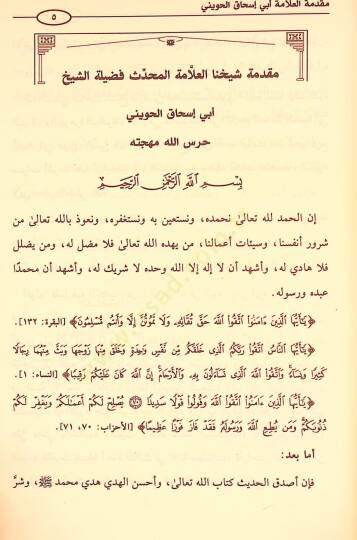 مقدمة العلامة أبي إسحاق الحويني
٥
مقدمة شيخنا العلَّامة المحدّث فضيلة الشيخ
أبي إسحاق الحويني
حرس الله مهجته
بِسْمِ اللَّهِ الرَّحْمَٰنِ الرَّحِيمِ
إن الحمد لله تعالى نحمده، ونستعين به ونستغفره، ونعوذ بالله تعالى من
شرور أنفسنا، وسيئات أعمالنا، من يهده الله تعالى فلا مضل له، ومن يضلل
فلا هادي له، وأشهد أن لا إله إلا الله وحده لا شريك له، وأشهد أن محمدًا
عبده ورسوله.
﴿يَٰٓأَيُّهَا ٱلَّذِينَ ءَامَنُوا۟ ٱتَّقُوا۟ ٱللَّهَ حَقَّ تُقَائِهِۦ وَلَا تَمُوتُنَّ إِلَّا وَأَنتُم مُّسْلِمُونَ﴾ [البقرة: ١٣٢].
﴿يَٰٓأَيُّهَا ٱلنَّاسُ ٱتَّقُوا۟ رَبَّكُمُ ٱلَّذِى خَلَقَكُم مِّن نَّفْسٍ وَٰحِدَةٍ وَخَلَقَ مِنْهَا زَوْجَهَا وَبَثَّ مِنْهُمَا رِجَالًا
كَثِيرًا وَنِسَآءً وَٱتَّقُوا۟ ٱللَّهَ ٱلَّذِى تَسَآءَلُونَ بِهِۦ وَٱلْأَرْحَامَ إِنَّ ٱللَّهَ كَانَ عَلَيْكُمْ رَقِيبًا﴾ [النساء: ١].
﴿يَٰٓأَيُّهَا ٱلَّذِينَ ءَامَنُوا۟ ٱتَّقُوا۟ ٱللَّهَ وَقُولُوا۟ قَوْلًا سَدِيدًا ۝٧٠ يُصْلِحْ لَكُمْ أَعْمَٰلَكُمْ وَيَغْفِرْ لَكُمْ
ذُنُوبَكُمْ وَمَن يُطِعِ ٱللَّهَ وَرَسُولَهُۥ فَقَدْ فَازَ فَوْزًا عَظِيمًا﴾ [الأحزاب: ٧٠، ٧١].
أما بعد:
فإن أصدق الحديث كتاب الله تعالى، وأحسن الهدي هدي محمد ﷺ، وشرَّ